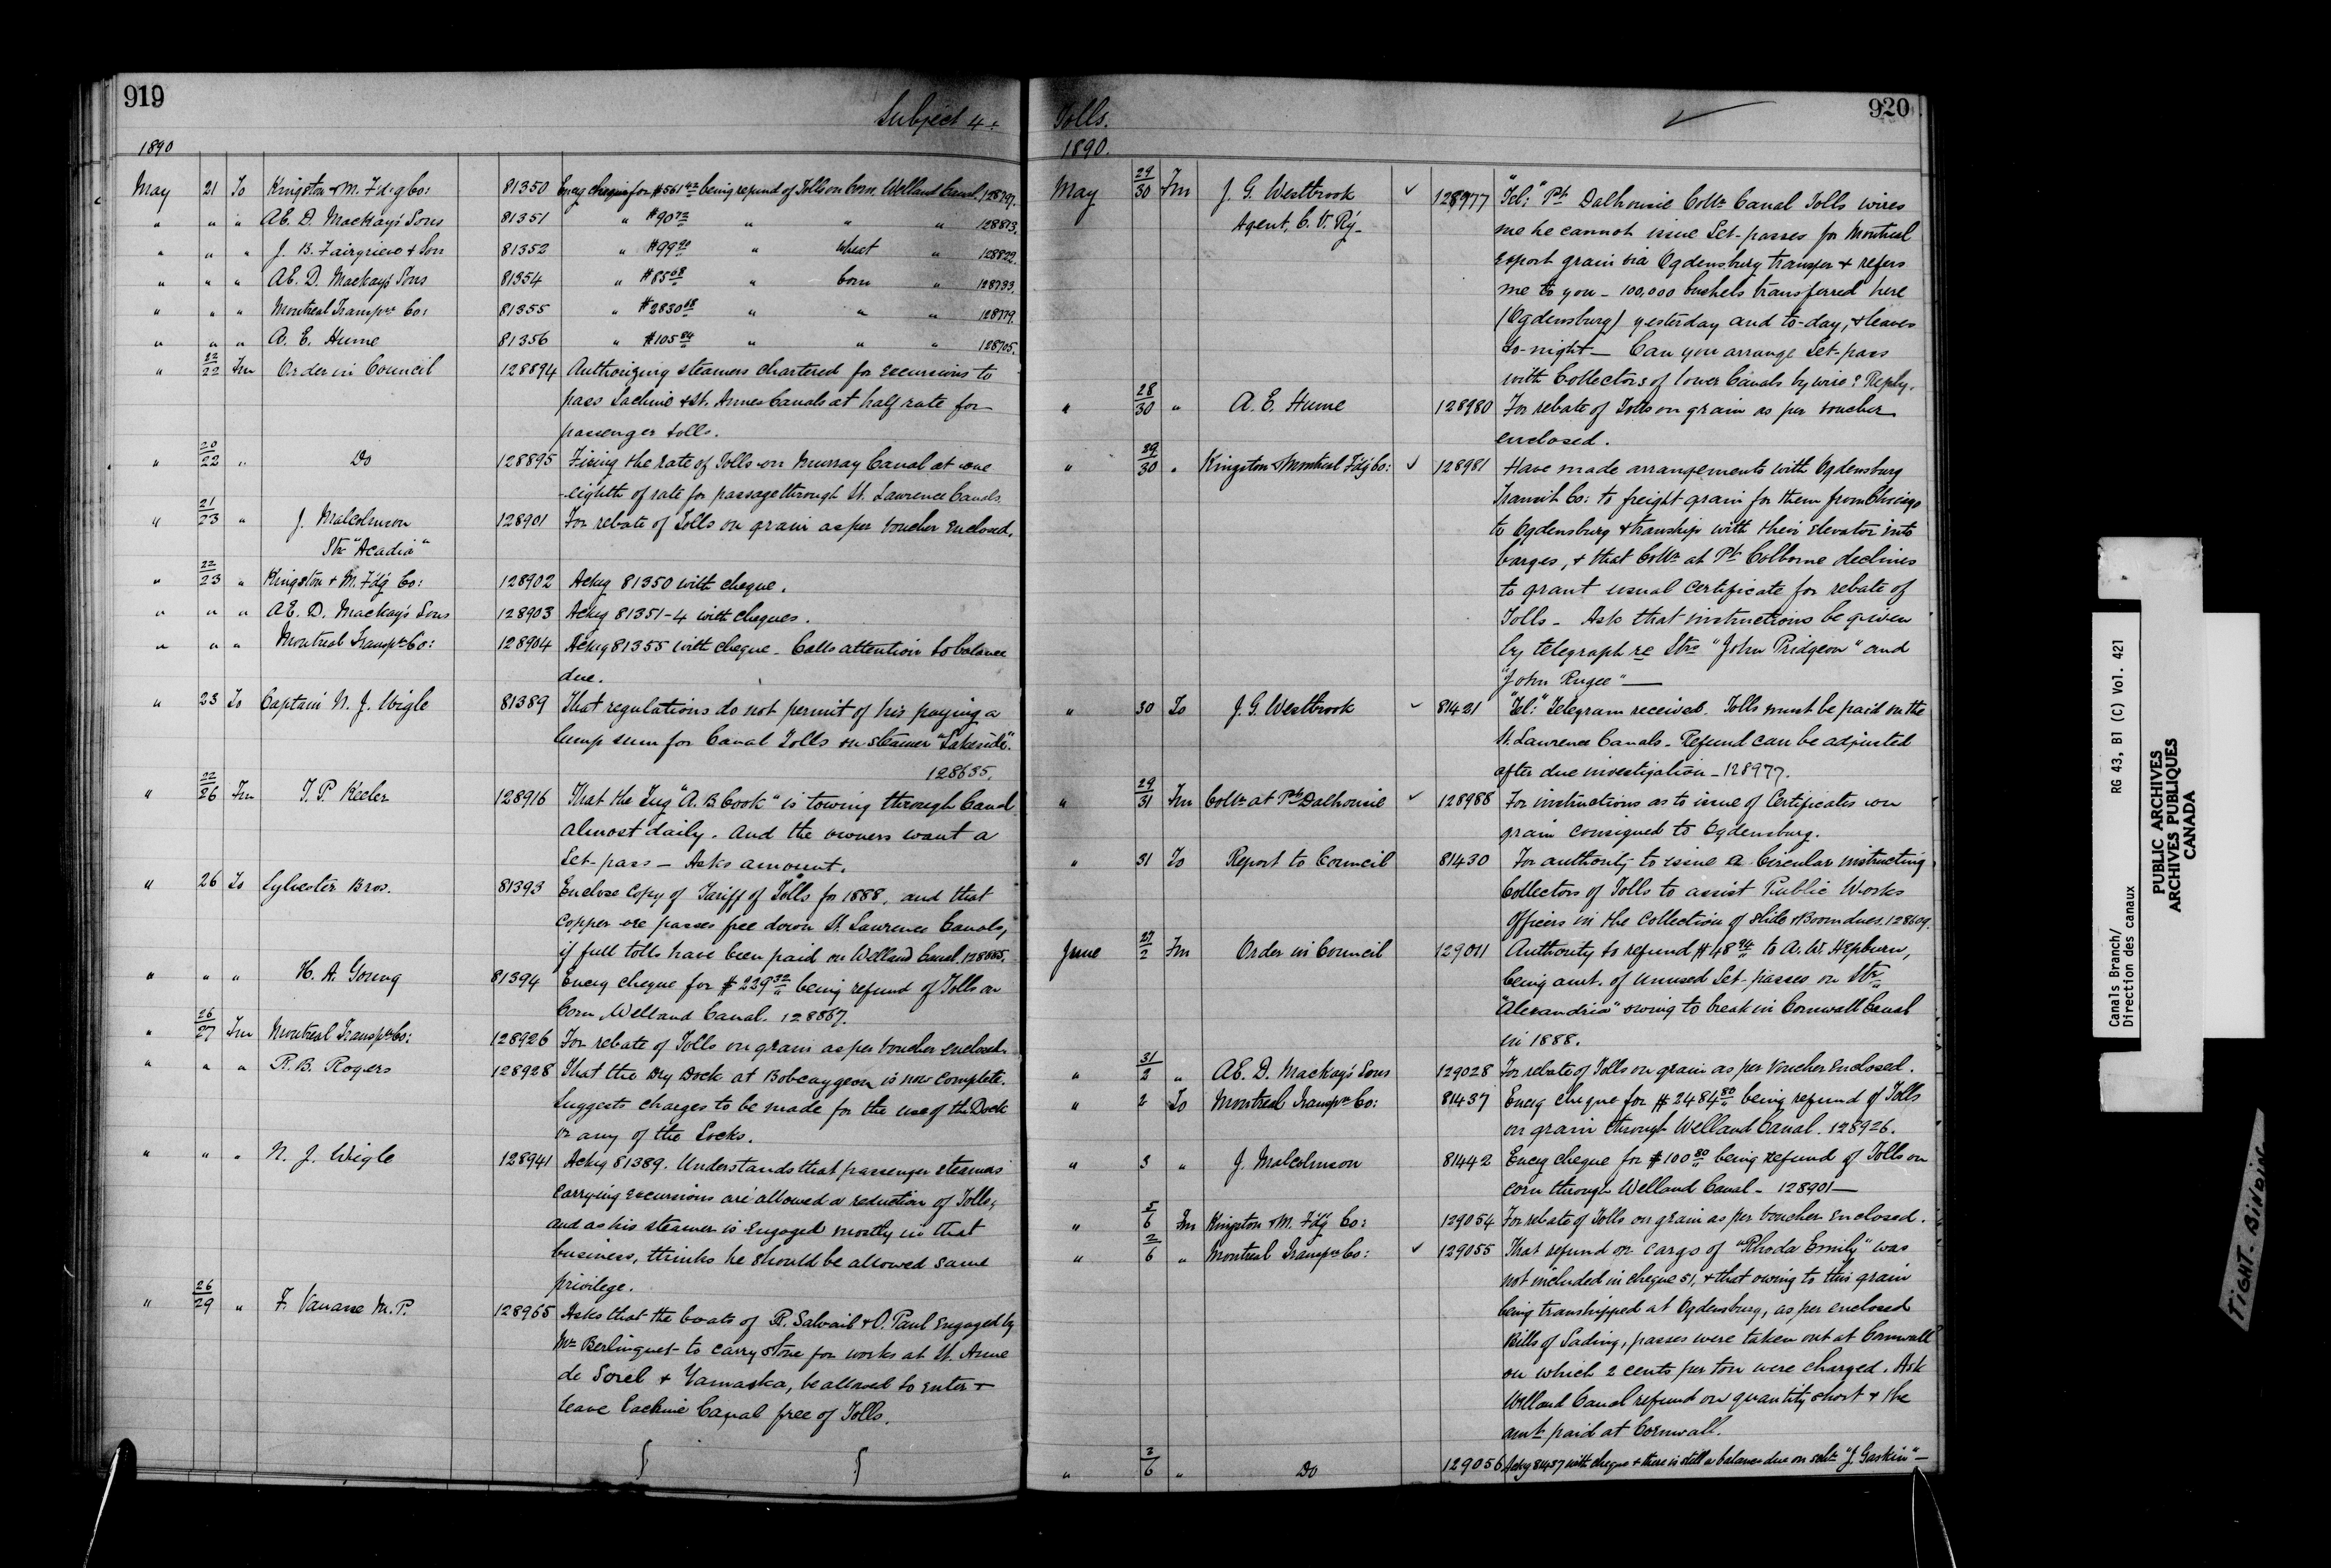 919
Subject 4:
1890
May 21 To Kingston & M. Fd'g Co: 81350 Encg cheque for $561 42 being refund of Tolls on Corn. Welland Canal. 128797.
" " " AE. D. Mackay's Sons 81351 " $90 72 " " " 128873.
" " " J. B. Fairgrieve & Son 81352 " $99 20 " Wheat " 128822.
" " " AE. D. Mackay's Sons 81354 " $85 68 " Corn " 128733.
" " " Montreal Transpn Co: 81355 " $2830 68 " " " 128779.
" " " A. E. Hume 81356 " $105 84 " " " 128705.
" 22/22 Fm Order in Council 128894 Authorizing steamers chartered for excursions to
pass Lachine & St. Annes Canals at half rate for
passenger tolls.
" 20/22 " Do 128895 Fixing the rate of Tolls on Murray Canal at one
-eighth of rate for passage through St. Lawrence Canals
" 21/23 " J. Malcolmson 128901 For rebate of Tolls on grain as per voucher enclosed.
Str "Acadia"
" 22/23 " Kingston & M. Fd'g Co: 128902 Ackg 81350 with cheque.
" " " AE. D. Mackay's Sons 128903 Ackg 81351-4 with cheques.
" " " Montreal Transpn Co: 128904 Ackg 81355 with cheque. Calls attention to balance
due.
" 23 To Captain N. J. Wigle 81389 That regulations do not permit of his paying a
lump sum for Canal Tolls on steamer "Lakeside".
128635.
" 22/26 Fm T. P. Keeler 128916 That the Tug "A. B Cook" is towing through Canal
almost daily. And the owners want a
Let-pass — Asks amount.
" 26 To Sylvester Bros. 81393 Enclose copy of Tariff of Tolls for 1888, and that
copper ore passes free down St. Lawrence Canals,
if full tolls have been paid on Welland Canal. 128885.
" " " H. A. Young 81394 Encg cheque for $239 32 being refund of Tolls on
Corn, Welland Canal. 128867.
" 26/27 Fm Montreal Transpn Co: 128926 For rebate of Tolls on grain as per voucher enclosed.
" " " R. B. Rogers 128928 That the Dry Dock at Bobcaygeon is now complete.
Suggests charges to be made for the use of the Dock
or any of the Locks.
" " " N. J. Wigle 128941 Ackg 81389. Understands that passenger steamers
carrying excursions are allowed a reduction of Tolls,
and as his steamer is engaged mostly in that
business, thinks he should be allowed same
privilege.
" 26/29 " F. Vanasse M. P. 128965 Asks that the boats of R. Salvail & O. Paul engaged by
Mr Berlinguet to carry stone for works at St. Anne
de Sorel & Yamaska, be allowed to enter &
leave Lachine Canal free of Tolls.
Tolls.
920
1890.
May 29/30 Fm J. G. Westbrook 128977 "Tel:" Pt. Dalhousie Collr Canal Tolls wires
Agent, C. V. R'y me he cannot issue Let-passes for Montreal
export grain via Ogdensburg transfer & refers
me to you — 100,000 bushels transferred here
(Ogdensburg) yesterday and to-day, & leaves
to-night — Can you arrange Let-pass
with Collectors of lower Canals by wire? Reply.
" 28/30 " A. E. Hume 128980 For rebate of Tolls on grain as per voucher
enclosed.
" 29/30 " Kingston & Montreal Fd'g Co: 128981 Have made arrangements with Ogdensburg
Transit Co: to freight grain for them from Chicago
to Ogdensburg & tranship with their elevator into
barges, & that Collr at Pt. Colborne declines
to grant usual certificate for rebate of
Tolls — Ask that instructions be given
by telegraph re Strs "John Pridgeon" and
"John Rugee" —
" 30 To J. G. Westbrook 81421 "Tel:" Telegram received. Tolls must be paid on the
St. Lawrence Canals — Refund can be adjusted
after due investigation — 128977.
" 29/31 Fm Collr at Pt. Dalhousie 128988 For instructions as to issue of Certificates on
grain consigned to Ogdensburg.
" 31 To Report to Council 81430 For authority to issue a Circular instructing
Collectors of Tolls to assist Public Works
Officers in the Collection of Slide & Boom dues. 128609.
June 27/2 Fm Order in Council 129011 Authority to refund $48 94 to A. W. Hepburn,
being amt. of unused Let-passes on Str
"Alexandria" owing to break in Cornwall Canal
in 1888.
" 31/2 " AE. D. Mackay's Sons 129028 For rebate of Tolls on grain as per voucher enclosed.
" 2 To Montreal Transpn Co: 81437 Encg cheque for $2484 80 being refund of Tolls
on grain through Welland Canal. 128926.
" 3 " J. Malcolmson 81442 Encg cheque for $100 80 being refund of Tolls on
corn through Welland Canal — 128901 —
" 5/6 Fm Kingston & M. Fd'g Co: 129054 For rebate of Tolls on grain as per voucher enclosed.
" 2/6 " Montreal Transpn Co: 129055 That refund on cargo of "Rhoda Emily" was
not included in cheque 51, & that owing to this grain
being transhipped at Ogdensburg, as per enclosed
Bills of Lading, passes were taken out at Cornwall
on which 2 cents per ton were charged. Ask
Welland Canal refund on quantity short & the
amt. paid at Cornwall.
" 3/6 " Do 129056 Ackg 81437 with cheque & there is still a balance due on schr "J. Gaskin" —
Canals Branch/
Direction des canaux
RG 43, B1 (C) Vol. 421
PUBLIC ARCHIVES
ARCHIVES PUBLIQUES
CANADA
TIGHT BINDING